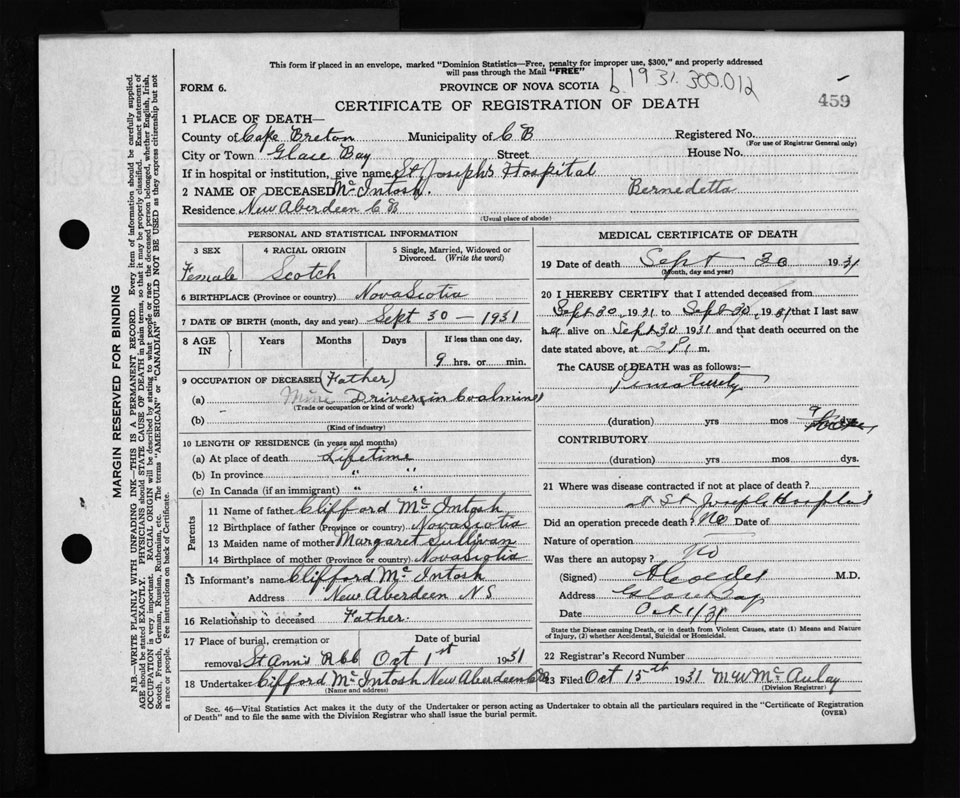 This form if placed in an envelope, marked "Dominion Statistics—Free, penalty for improper use, $300," and properly addressed
will pass through the Mail "FREE"
FORM 6.
PROVINCE OF NOVA SCOTIA
1931.300.012
459
CERTIFICATE OF REGISTRATION OF DEATH
1 PLACE OF DEATH—
County of Cape Breton Municipality of C B Registered No.
(For use of Registrar General only)
City or Town Glace Bay Street House No.
If in hospital or institution, give name St Joseph's Hospital
2 NAME OF DECEASED McIntosh. Bernedetta
Residence New Aberdeen C B
(Usual place of abode)
PERSONAL AND STATISTICAL INFORMATION
3 SEX 4 RACIAL ORIGIN 5 Single, Married, Widowed or
Divorced. (Write the word)
Female Scotch
6 BIRTHPLACE (Province or country) Nova Scotia
7 DATE OF BIRTH (month, day and year) Sept 30 — 1931
8 AGE IN Years Months Days If less than one day,
9 hrs. or min.
9 OCCUPATION OF DECEASED (Father)
(a) Mine Driver in Coalmines
(Trade or occupation or kind of work)
(b)
(Kind of industry)
10 LENGTH OF RESIDENCE (in years and months)
(a) At place of death Lifetime
(b) In province " "
(c) In Canada (if an immigrant) " "
Parents
11 Name of father Clifford McIntosh
12 Birthplace of father (Province or country) Nova Scotia
13 Maiden name of mother Margaret Sullivan
14 Birthplace of mother (Province or country) Nova Scotia
15 Informant's name Clifford McIntosh
Address New Aberdeen N S
16 Relationship to deceased Father.
17 Place of burial, cremation or Date of burial
removal St Ann's Oct 1st 1931
18 Undertaker Clifford McIntosh New Aberdeen C B
(Name and address)
MEDICAL CERTIFICATE OF DEATH
19 Date of death Sept 30 1931
(Month, day and year)
20 I HEREBY CERTIFY that I attended deceased from
Sept 30, 1931 to Sept 30, 1931 that I last saw
h alive on Sept 30 1931 and that death occurred on the
date stated above, at m.
The CAUSE OF DEATH was as follows:—
Prematurity
(duration) yrs mos 9
CONTRIBUTORY
(duration) yrs mos dys.
21 Where was disease contracted if not at place of death?
St Joseph's Hospital
Did an operation precede death? No Date of
Nature of operation
Was there an autopsy? No
(Signed) M.D.
Address Glace Bay
Date Oct 1/31
State the Disease causing Death, or in death from Violent Causes, state (1) Means and Nature
of Injury, (2) whether Accidental, Suicidal or Homicidal.
22 Registrar's Record Number
23 Filed Oct 15th 1931 M W McAulay
(Division Registrar)
Sec. 46—Vital Statistics Act makes it the duty of the Undertaker or person acting as Undertaker to obtain all the particulars required in the "Certificate of Registration
of Death" and to file the same with the Division Registrar who shall issue the burial permit.
(OVER)
MARGIN RESERVED FOR BINDING
N.B.—WRITE PLAINLY WITH UNFADING INK—THIS IS A PERMANENT RECORD. Every item of information should be carefully supplied.
AGE should be stated EXACTLY. PHYSICIANS should STATE CAUSE OF DEATH in plain terms, so that it may be properly classified. Exact statement of
OCCUPATION is very important. RACIAL ORIGIN will be described by stating to what people or race the deceased person belonged, whether English, Irish,
Scotch, French, German, Russian, Ruthenian, etc. The terms "AMERICAN" or "CANADIAN" SHOULD NOT BE USED as they express citizenship but not
a race or people. See instructions on back of Certificate.